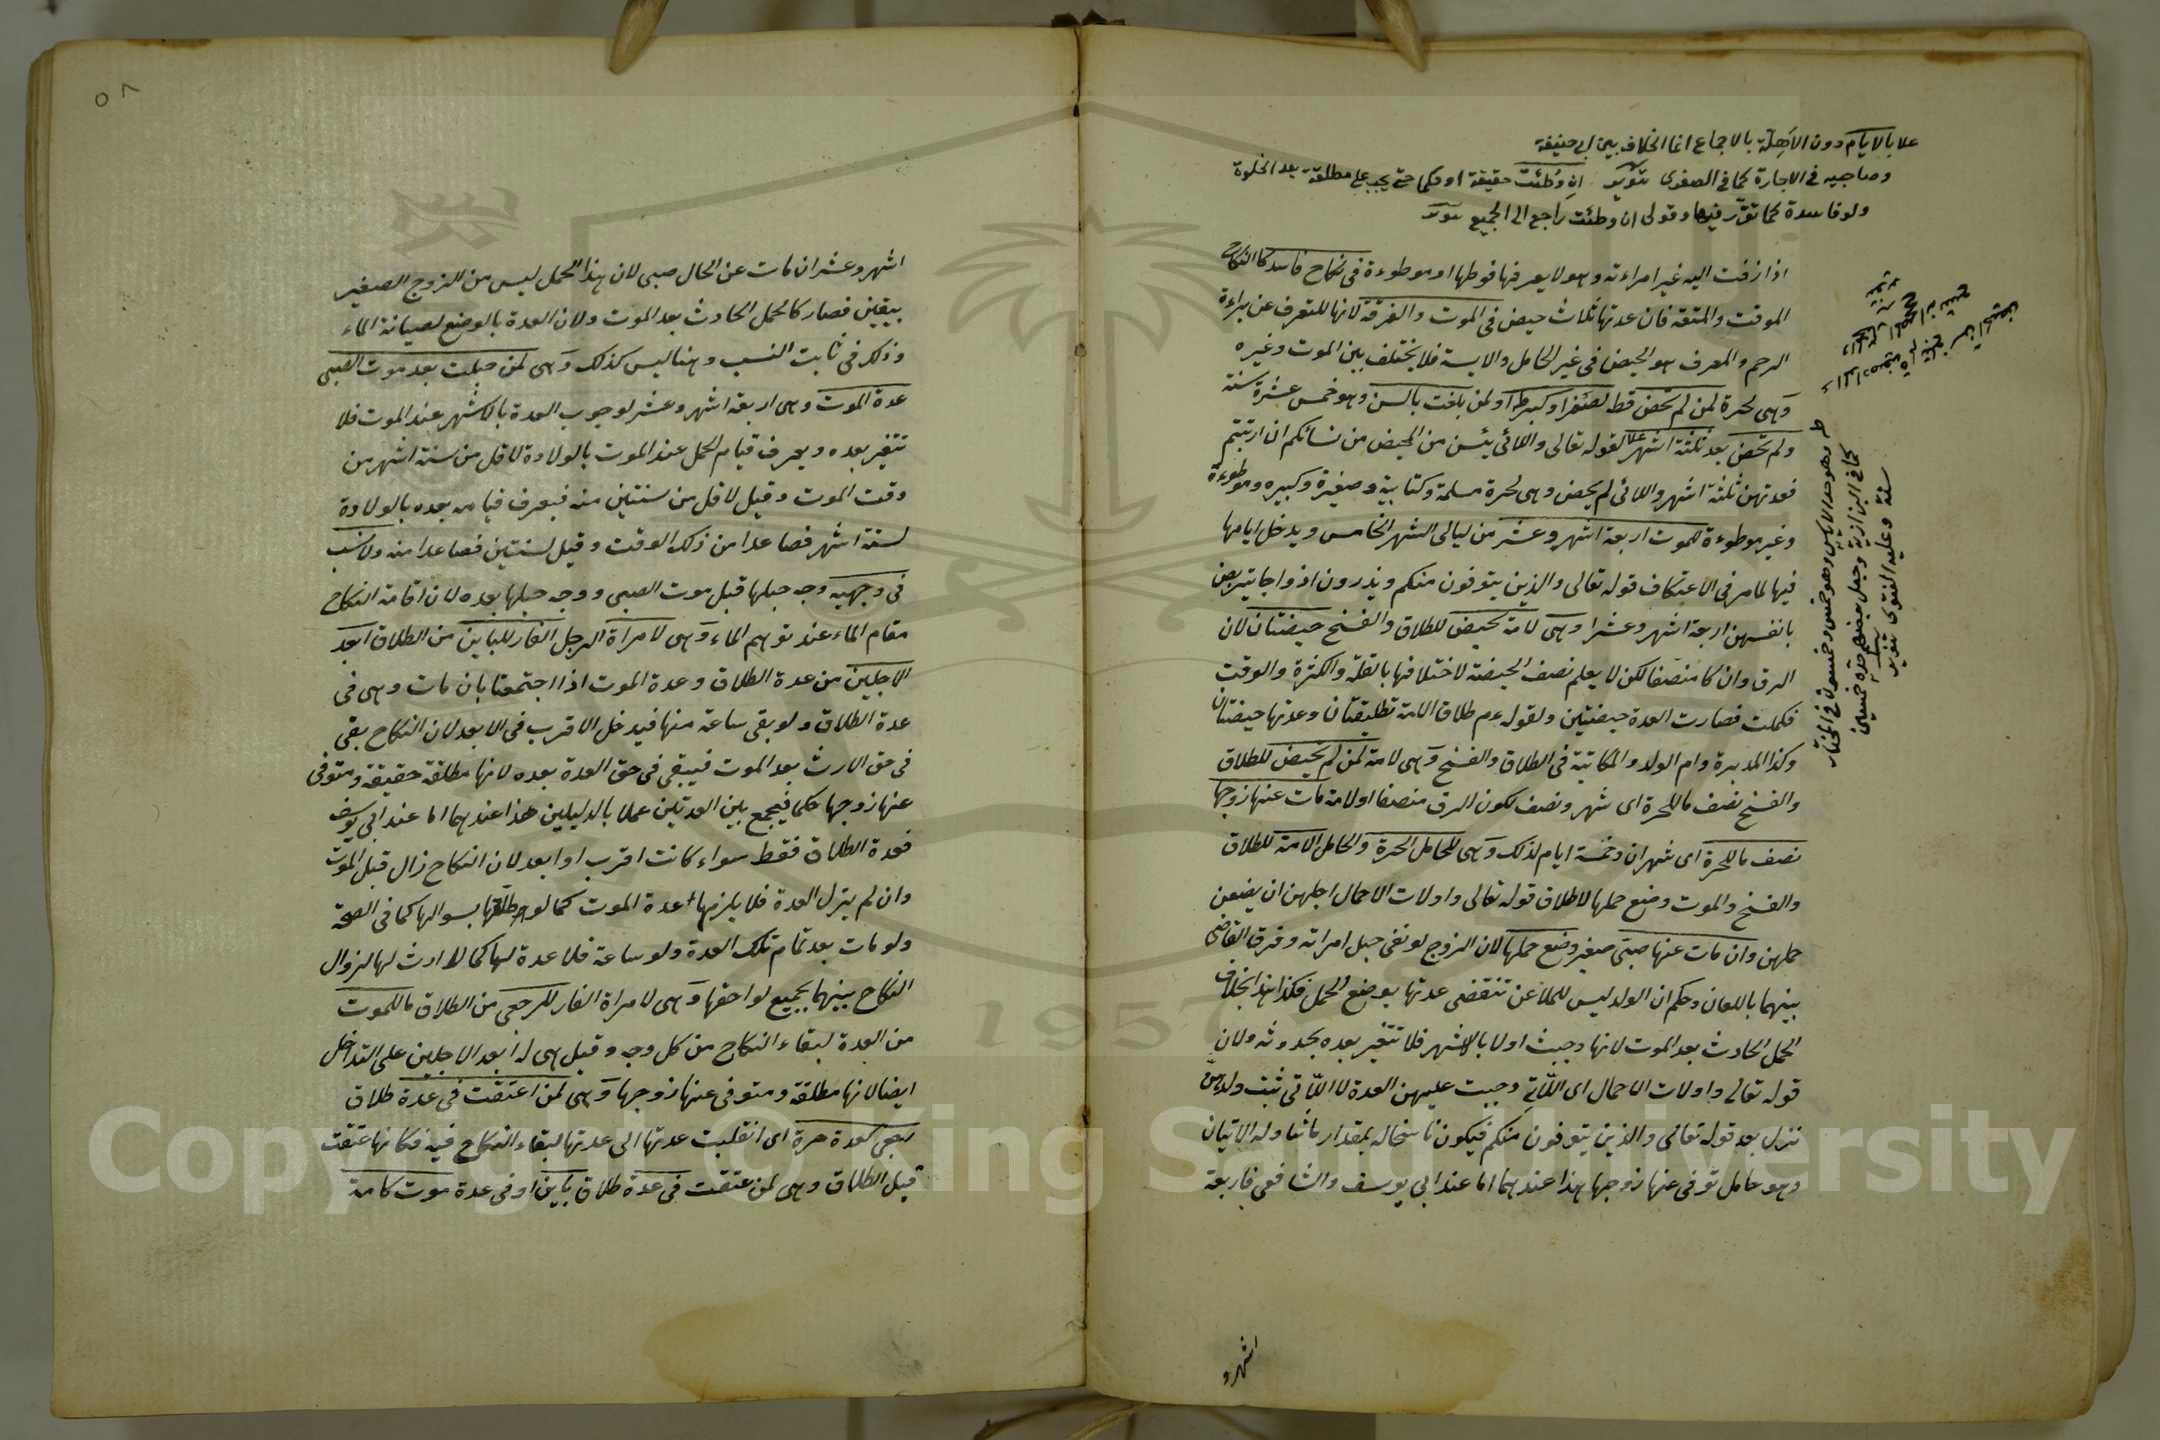 علا بالايام دون الاهلة بالاجماع انما الخلاف بين ابي حنيفة
وصاحبيه في الاجارة كما في الصغرى تنوير ان وطئت حقيقة او حكما حتى يجب على مطلقة بعد الخلوة
ولو فاسدة كما تقرر فيها وقولى ان وطئت راجع الى الجميع تنوير
اذا زفت اليه غير امراءته وهو لا يعرفها فوطئها او موطوءة في نكاح فاسد كالنكاح
الموقت والمتعة فان عدتها ثلاث حيض في الموت والفرقة لانها للتعرف عن براءة
الرحم والمعرف هو الحيض في غير الحامل والايسة فلا يختلف بين الموت وغيره
وهى لحرة لمن لم تحض قط لصغر او كبر او لمن بلغت بالسن وهو خمس عشرة سنة
ولم تحض بعد ثلثة اشهر لقوله تعالى واللائى يئسن من المحيض من نسائكم ان ارتبتم
فعدتهن ثلثة اشهر واللائى لم يحضن وهى لحرة مسلمة وكتابية وصغيرة وكبيره وموطوءة
وغير موطوءة للموت اربعة اشهر وعشر من ليالى الشهر الخامس ويدخل ايامها
فيها لما مر في الاعتكاف قوله تعالى والذين يتوفون منكم ويذرون ازواجا يتربصن
بانفسهن اربعة اشهر وعشرا وهى لامة تحيض للطلاق والفسخ حيضتان لان
الرق وان كان منصفا لكن لا يعلم نصف الحيضة لاختلافها بالقلة والكثرة والوقت
فكملت فصارت العدة حيضتين ولقوله عم طلاق الامة تطليقتان وعدتها حيضتان
وكذا المدبرة وام الولد والمكاتبة في الطلاق والفسخ وهى لامة لمن لم تحيض للطلاق
والفسخ نصف ما للحرة اى شهر ونصف لكون الرق منصفا او لامة مات عنها زوجها
نصف ما للحرة اى شهران وخمسة ايام لذلك وهى للحامل الحرة والحامل الامة للطلاق
والفسخ والموت وضع حملها لاطلاق قوله تعالى واولات الاحمال اجلهن ان يضعن
حملهن وان مات عنها صبى صغير وضع حملها لان الزوج لو نفى حبل امراته وفرق القاضى
بينهما باللعان وحكم ان الولد ليس للملاعن تنقضى عدتها بوضع الحمل فكذا هذا بخلاف
الحمل الحادث بعد الموت لانها وجبت اولا بالاشهر فلا تتغير بعده بحدوثه ولان
قوله تعالى واولات الاحمال اى اللاتى وجبت عليهن العدة لا اللاتى ثبت ولدهن
نزل بعد قوله تعالى والذين يتوفون منكم فيكون ناسخا له بمقدار ما تناوله الايتان
وهو حامل توفى عنها زوجها هذا عندهما اما عند ابى يوسف والشافعى فاربعة
اشهر و
وهو حد الاياس وهو خمس وخمسون في المختار
كما في البزازية وجعل بعضهم حده خمسين
سنة وعليه الفتوى تنوير
٥٨
اشهر وعشر ان مات عن الحال صبى لان هذا الحمل ليس من الزوج الصغير
بيقين فصار كالحمل الحادث بعد الموت ولان العدة بالوضع لصيانة الماء
وذلك في ثابت النسب وهنا ليس كذلك وهى لمن حبلت بعد موت الصبى
عدة الموت وهى اربعة اشهر وعشر لوجوب العدة بالاشهر عند الموت فلا
تتغير بعده ويعرف قيام الحمل عند الموت بالولادة لاقل من ستة اشهر من
وقت الموت وقيل لاقل من سنتين منه فيعرف قيامه بعده بالولادة
لستة اشهر فصاعدا من ذلك الوقت وقيل لسنتين فصاعدا منه ولا نسب
في وجهيه وجه حبلها قبل موت الصبى ووجه حبلها بعده لان اقامة النكاح
مقام الماء عند توهم الماء وهى لامراة الرجل الفار للباين من الطلاق ابعد
الاجلين من عدة الطلاق وعدة الموت اذا اجتمعتا بان مات وهى في
عدة الطلاق ولو بقى ساعة منها فيدخل الاقرب في الابعد لان النكاح بقى
في حق الارث بعد الموت فيبقى في حق العدة بعده لانها مطلقة حقيقة ومتوفى
عنها زوجها حكما فيجمع بين العدتين عملا بالدليلين هذا عندهما اما عند ابى يوسف
فعدة الطلاق فقط سواء كانت اقرب او ابعد لان النكاح زال قبل الموت
وان لم يزل العدة فلا يلزمها عدة الموت كما لو طلقها بسوالها كما في الصحة
ولو مات بعد تمام تلك العدة ولو ساعة فلا عدة لها كما لا ارث لها لزوال
النكاح بينهما بجميع لواحقها وهى لامراة الفار للرجعى من الطلاق ما للموت
من العدة لبقاء النكاح من كل وجه وقيل هى له ابعد الاجلين على التداخل
ايضا لانها مطلقة ومتوفى عنها زوجها وهى لمن اعتقت في عدة طلاق
رجعى كعدة حرة اى انقلبت عدتها الى عدتها لبقاء النكاح فيه فكانها عتقت
قبل الطلاق وهى لمن عتقت في عدة طلاق باين او في عدة موت كامة
Copyright © King Saud University
1957